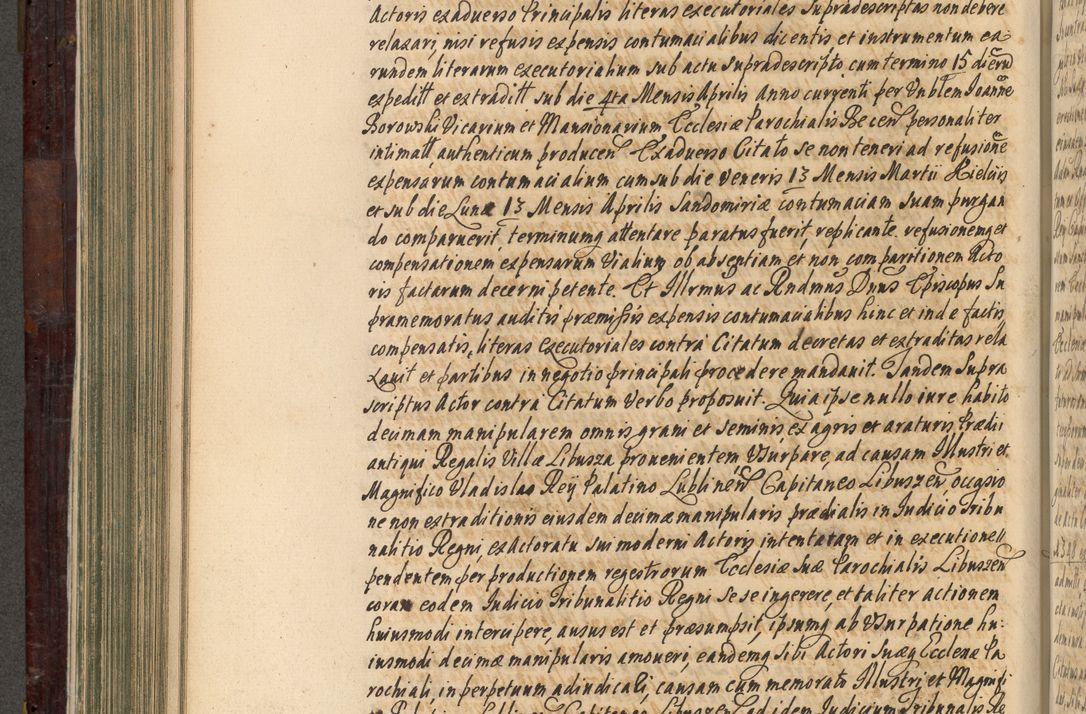 Actoris ex aduerso Principalis literas executoriales supradescriptas non debere
relaxari, nisi refusis expensis contumacialibus dicentis et instrumentum ea-
rundem literarum executorialium sub actu supradescripto cum termino 15 dierũ
expeditt et extraditt sub die 4ta Mensis Aprilis Anno currenti per Vnblem Joanne
Borowski Vicarium et Mansionarium Ecclesiæ Parochialis Becen personaliter
intimatt authenticum producen Ex aduerso Citato se non teneri ad refusione
expensarum contumacialium cum sub die Veneris 13 Mensis Martii Kielciis
et sub die Lunæ 13 Mensis Aprilis Sandomiriæ contumaciam suam purgan
do comparuerit, terminumq attentare paratus fuerit, replicante, refusionemq et
compensationem expensarum Vialium ob absentiam et non comparitionem Acto
ris factarum decerni petente. Et Illrmus ac Rndmus Dnus Episcopus Su
pramemoratus auditis præmissis expensis contumacialibus hinc et inde factis
compensatis, literas Executoriales contra Citatum decretas et extraditas rela
xauit et partibus in negotio principali procedere mandauit. Tandem Supra
scriptus Actor contra Citatum Verbo proposuit. Quia ipse nullo iure habito
decimam manipularem omnis grani et seminis, ex agris et araturis Prædii
antiqui Regalis Villæ Libusza prouenientem Vsurpare, ad causam Illustri et
Magnifico Vladislao Rey Palatino Lublinen Capitaneo Libuszen, occasio
ne non extraditionis eiusdem decimæ manipularis prædialis in Judicio Tribu
nalitio Regni, ex Actoratu sui moderni Actoris intentatam et in executione
pendentem per productionem regestrorum Ecclesiæ suæ Parochialis Libuszen
coram eodem Judicio Tribunalitio Regni se se ingerere, et taliter actionem
huiusmodi intercipere, ausus est et præsumpsit, ipsumq ab Vsurpatione hu:
iusmodi decimæ manipularis amoueri, eandemq sibi Actori suæq Ecclesiæ Pa
rochiali, in perpetuum adiudicali, causam cum memorato Illustri et Magnifi
co Palatino Lublinen Capitaneo Libuszen ad idem Judicium Tribunalis Re